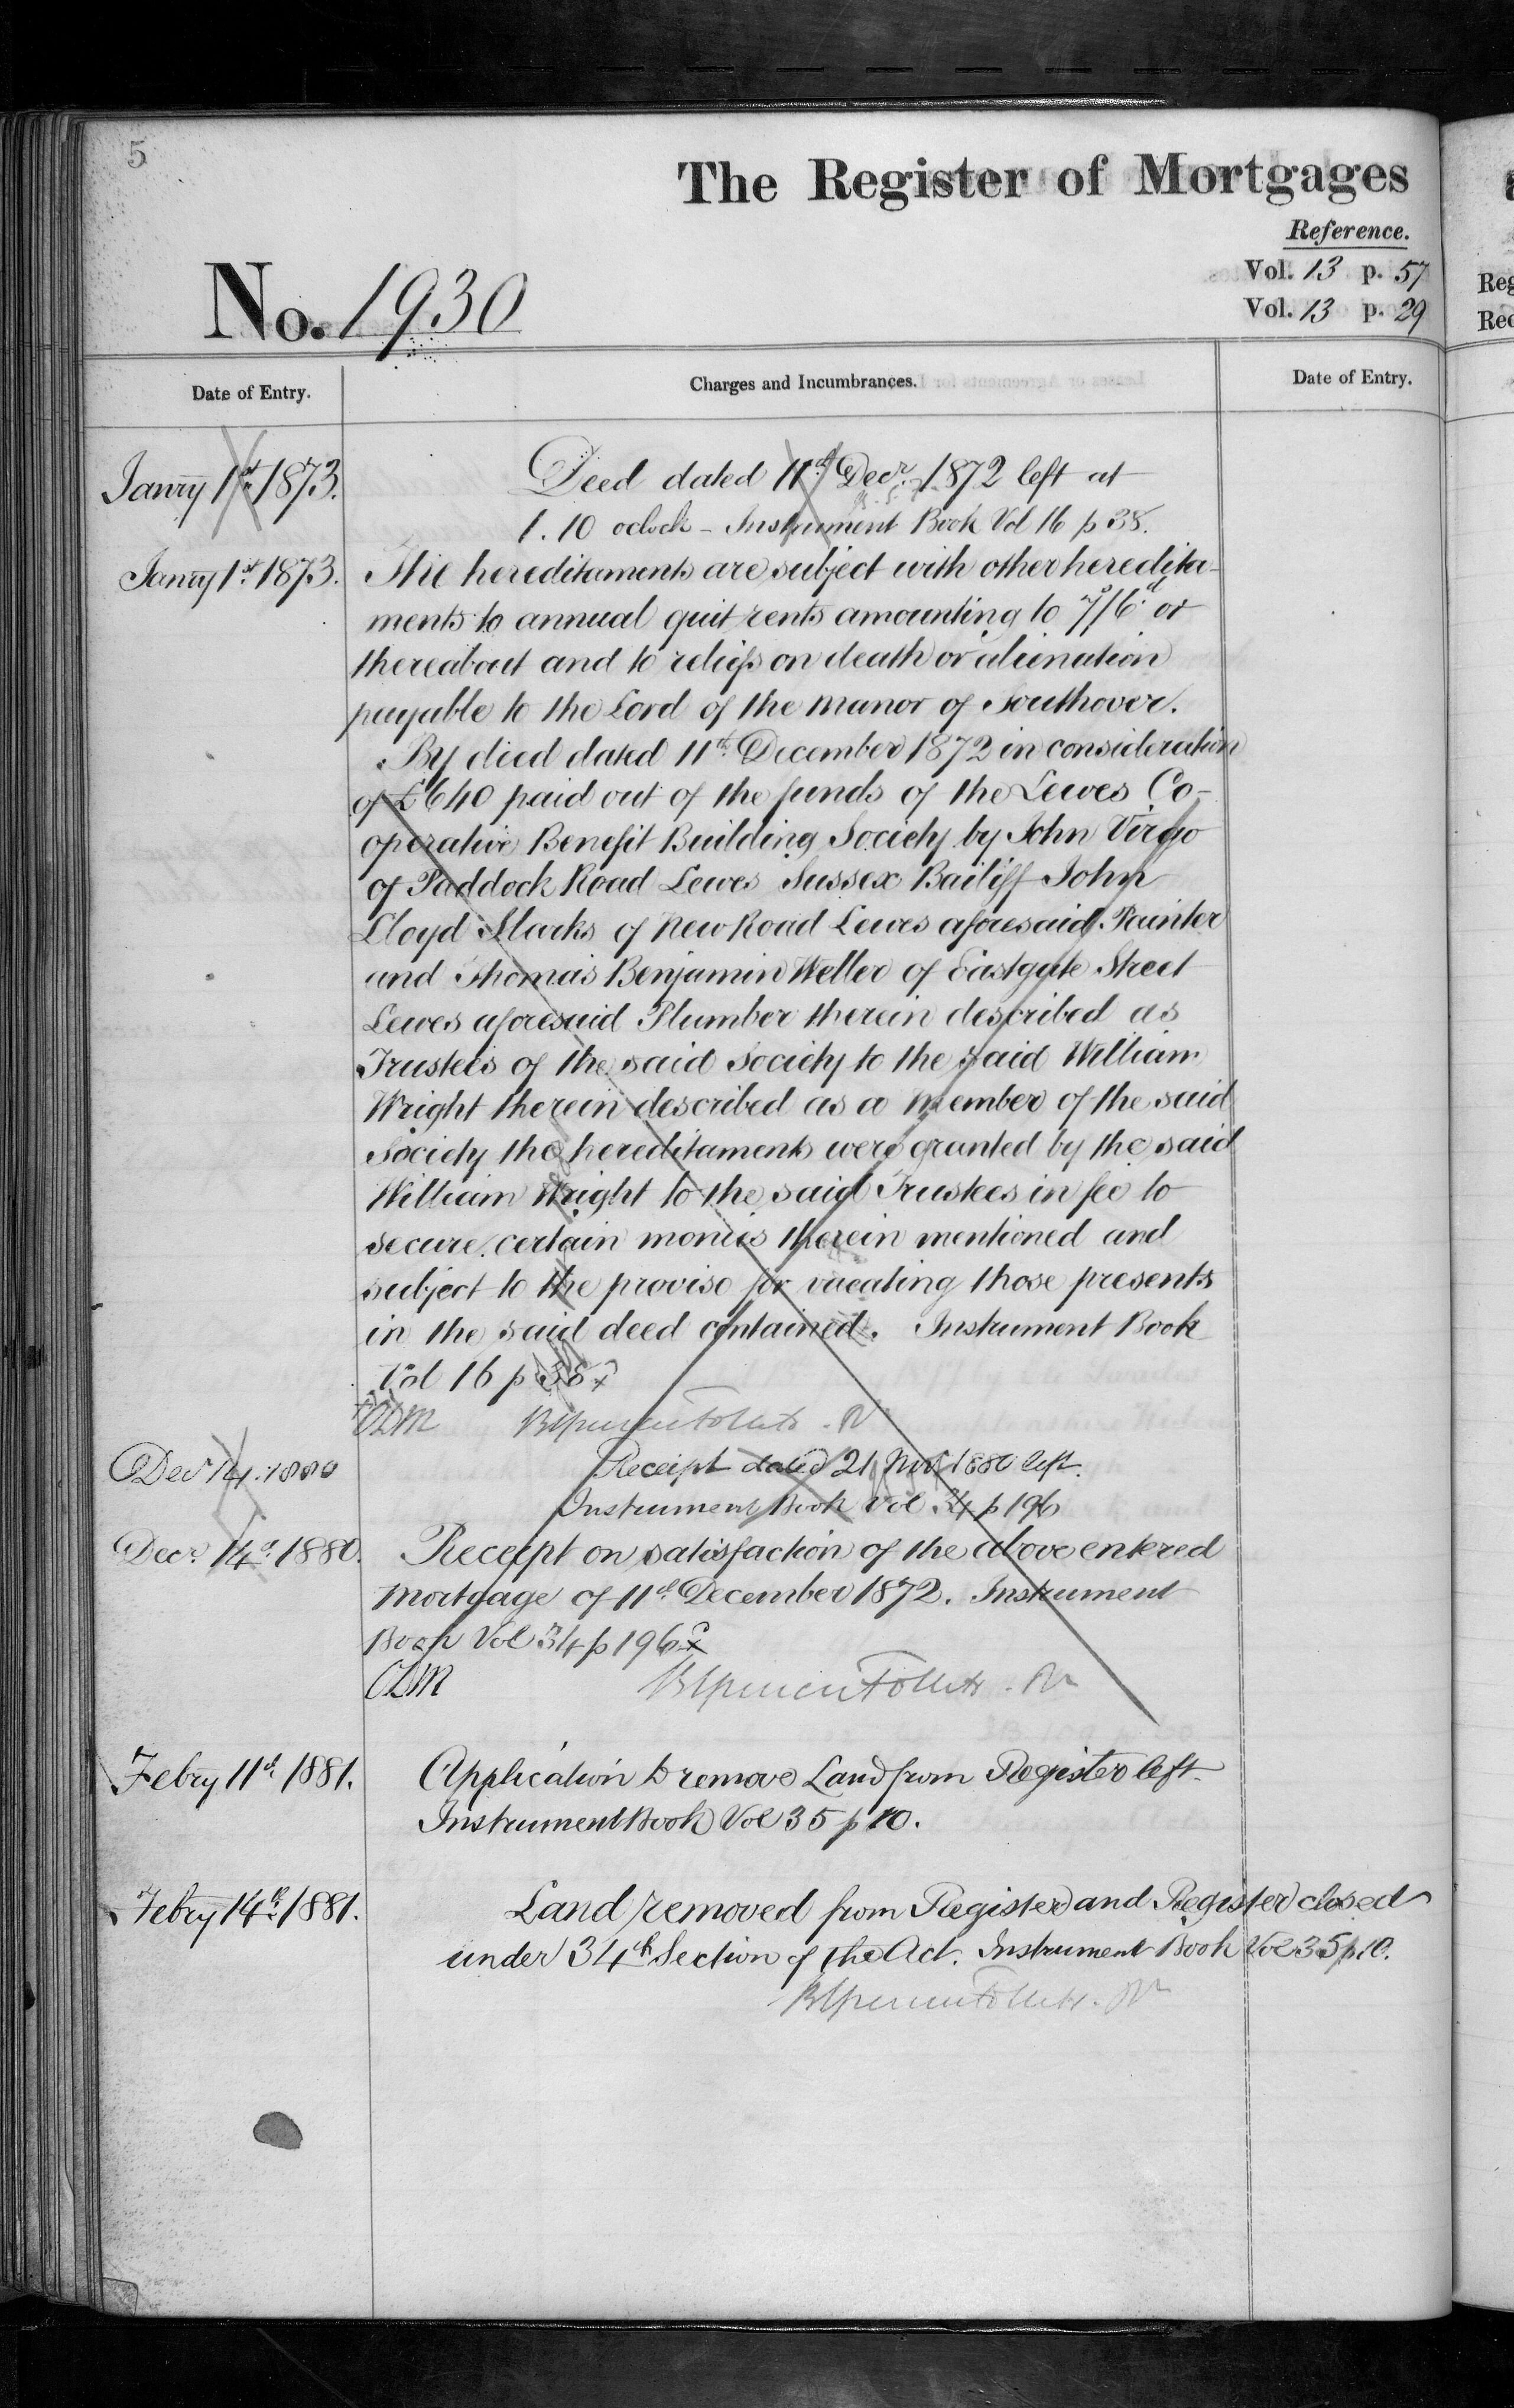 5
The Register of Mortgages
Reference.
Vol. 13 p. 57
No. 1930
Vol. 13 p. 29
Date of Entry.
Charges and Incumbrances.
Date of Entry.
Janry 1st 1873.
Deed dated 11th Decr. 1872 left at
1.10 oclock - Instrument Book Vol 16 p 38.
Janry 1st 1873.
The hereditaments are subject with other heredita-
ments to annual quit rents amounting to 7s/6d or
thereabout and to reliefs on death or alienation
payable to the Lord of the Manor of Southover.
By deed dated 11th December 1872 in consideration
of £640 paid out of the funds of the Lewes Co-
operative Benefit Building Society by John Virgo
of Paddock Road Lewes Sussex Bailiff John
Lloyd Marks of New Road Lewes aforesaid Painter
and Thomas Benjamin Weller of Eastgate Street
Lewes aforesaid Plumber therein described as
Trustees of the said Society to the said William
Wright therein described as a Member of the said
Society the hereditaments were granted by the said
William Wright to the said Trustees in fee to
secure certain monies therein mentioned and
subject to the proviso for vacating those presents
in the said deed contained. Instrument Book
Vol 16 p 38
Decr 14. 1880
Receipt dated 21 Novr 1880 left.
Instrument Book Vol 34 p 196
Decr. 14th 1880.
Receipt on satisfaction of the above entered
Mortgage of 11th December 1872. Instrument
Book Vol 34 p 196
Febry 11th 1881.
Application to remove Land from Register left.
Instrument Book Vol 35 p 10.
Febry 14th 1881.
Land removed from Register and Register closed
under 34th Section of the Act. Instrument Book Vol 35 p 10.
Reg
Rec